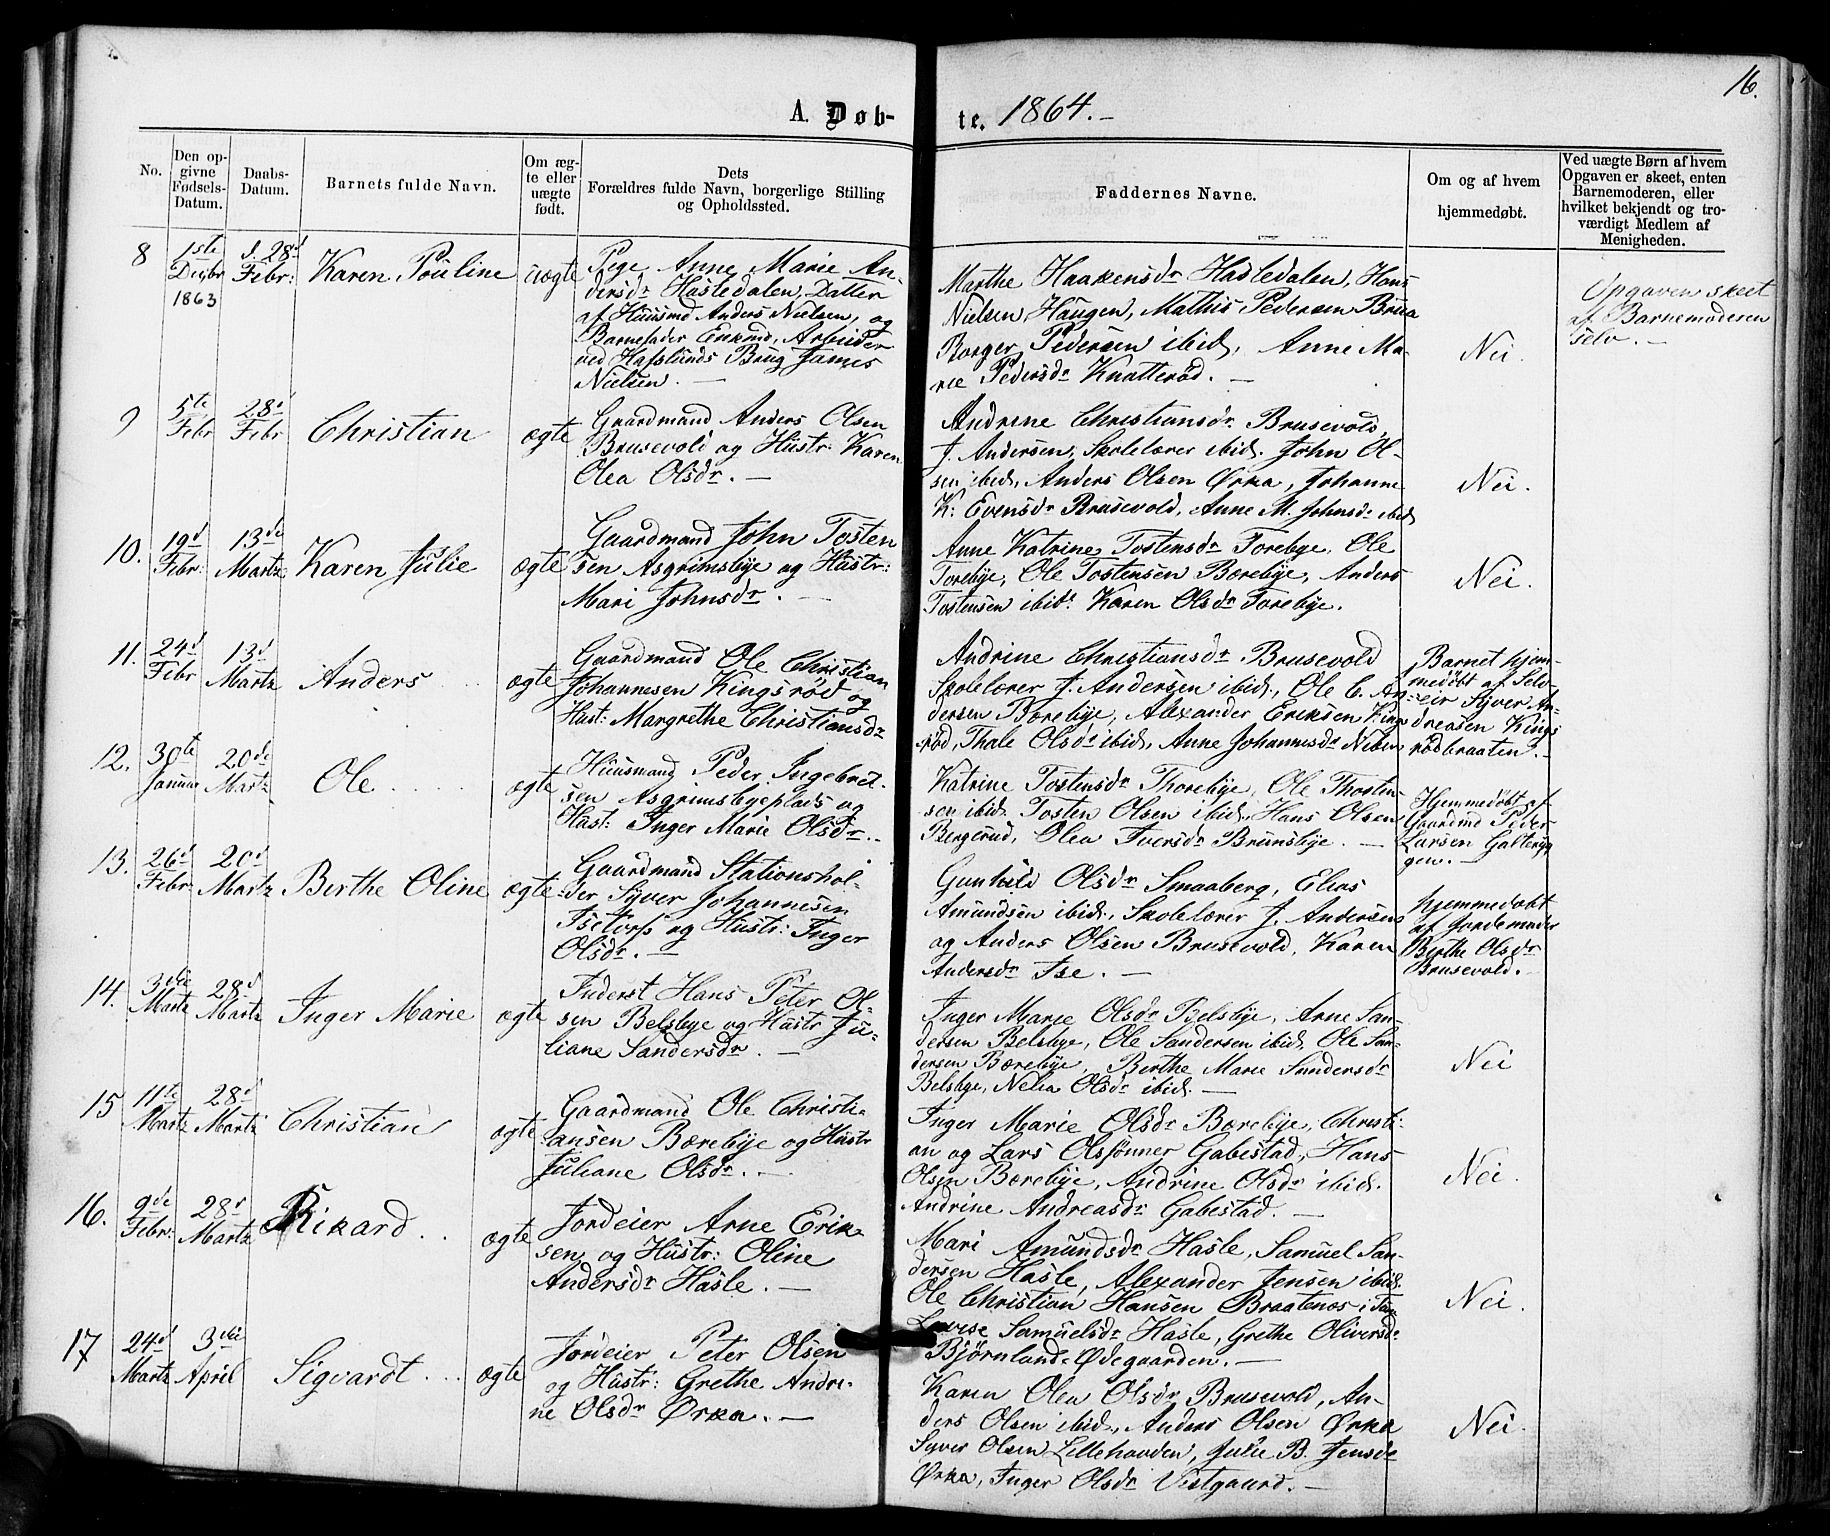 16.
A. Døb-te. 1864.-
No.
Den op-
givne
Fødsels-
Datum.
Daabs-
Datum.
Barnets fulde Navn.
Om æg-
te eller
uægte
født.
Dets
Forældres fulde Navn, borgerlige Stilling
og Opholdssted.
Faddernes Navne.
Om og af hvem
hjemmedøbt.
Ved uægte Børn af hvem
Opgaven er skeet, enten
Barnemoderen, eller
hvilket bekjendt og tro-
værdigt Medlem af
Menigheden.
8
1ste
Decbr
1863
d. 28d
Febr:
Karen Pouline
uægte
Pige Anne Marie An-
dersdr Hasledalen, Datter
af Huusmd Anders Nielsen, og
Barnefader Enkemd, Arbeider
ved Hafslunds Brug James
Nielsen. —
Marthe Haakensdr Hasledalen, Hans
Nielsen Haugen, Mathis Pedersen Brua
Borger Pedersen ibid, Anne Ma-
rie Pedersdr Knatterød. —
Nei.
Opgaven skeet
af Barnemoderen
selv. —
9
5te
Febr
28d
Febr
Christian
ægte
Gaardmand Anders Olsen
Brusevold og Hustr: Karen
Olea Olsdr. —
Andrine Christiansdr Brusevold,
J. Andersen, Skolelærer ibid. John Ol-
sen ibid, Anders Olsen Ørka, Johanne
K: Evensdr Brusevold, Anne M. Johnsdr ibid
Nei.
10.
19d
Febr:
13de
Martz
Karen Julie
ægte
Gaardmand John Tosten
sen Asgrimsbye og Hustr:
Mari Johnsdr. —
Anne Katrine Tostensdr Torebye, Ole
Torebye, Ole Tostensen Bærebye, Anders
Tostensen ibid: Karen Olsdr Torebye.
Nei.
11.
24d
Febr
13d
Martz
Anders
ægte
Gaardmand Ole Christian
Johannesen Kingsrød og
Hust: Margrethe Christiansdr
Andrine Christiansdr Brusevold
Skolelærer J. Andersen ibid, Ole C. An-
dersen Bærebye, Alexander Eriksen Kings
rød, Thale Olsdr ibid, Anne Johannesdr
Barnet hjem-
medøbt af Selv-
eier Syver An-
dreasen Kings
rødbraaten. —
12.
30te
Januar
20de
Martz
Ole
ægte
Huusmand Peder Ingebret-
sen Asgrimsbyeplads og
Hust: Inger Marie Olsdr. —
Katrine Tostensdr Thorebye, Ole Thosten-
sen ibid. Tosten Olsen ibid, Hans Olsen
Bergerud, Olea Iversdr Brunsbye. —
Hjemmedøbt af
Gaardmd Peder
Larsen Galteryg
gen. —
13.
26d
Febr.
20d
Martz
Berthe Oline
ægte
Gaardmand Stationshol-
der Syver Johannesen
Isetorp og Hustr: Inger
Olsdr. —
Gunhild Olsdr Smaaberg, Elias
Amundsen ibid, Skolelærer J. Andersen
og Anders Olsen Brusevold, Karen
Andersdr Ise. —
hjemmedøbt
af Jordemoder
Berthe Olsdr
Brusevold. —
14.
3die
Martz
28d
Martz
Inger Marie
ægte
Inderst Hans Peter Ol-
sen Belsbye og Hustr Ju-
liane Sandersdr. —
Inger Marie Olsdr Belsbye, Arne San-
dersen Belsbye, Ole Sandersen ibid, Ole San-
dersen Bærebye, Berthe Marie Sandersdr
Belsbye, Nelia Olsdr ibid. —
Nei
15
11te
Martz
28d
Martz
Christian
ægte
Gaardmand Ole Christi-
ansen Bærebye og Hustr
Juliane Olsdr. —
Inger Marie Olsdr Bærebye, Christi-
an og Lars Olssønner Gabestad, Hans
Olsen Bærebye, Andrine Olsdr ibid.
Andrine Andreasdr Gabestad. —
Nei.
16.
9de
Febr:
28d
Martz
Rikard
ægte
Jordeier Arne Erik-
sen og Hustr: Oline
Andersdr Hasle. —
Mari Amundsdr Hasle, Samuel San-
dersen Hasle, Alexander Jensen ibid.
Ole Christian Hansen Braatenos i
Lovise Samuelsdr Hasle, Grethe Oliversdr
Bjørnland-Ødegaarden. —
Nei.
17
24d
Martz
3die
April
Sigvardt
ægte
Jordeier Peter Olsen
og Hustr: Grethe Andri-
ne Olsdr Ørka. —
Karen Olea Olsdr Brusevold, An-
ders Olsen ibid, Anders Olsen Ørka
Syver Olsen Lillehaoden, Julie B. Jensdr
Ørka, Inger Olsdr Vestgaard. —
Nei.